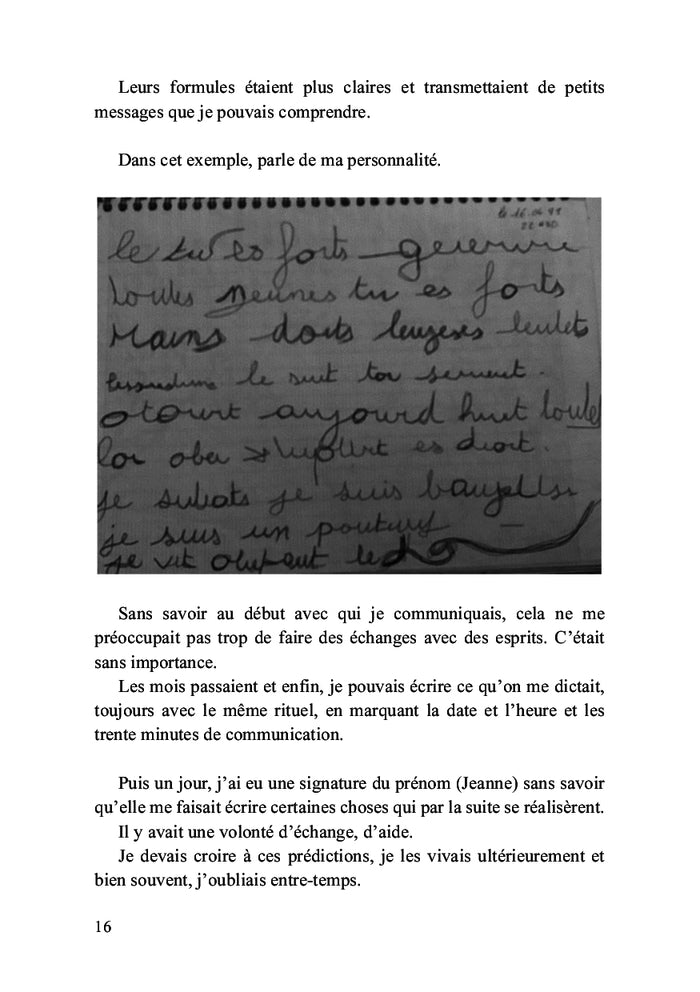 Leurs formules étaient plus claires et transmettaient de petits
messages que je pouvais comprendre.
Dans cet exemple, parle de ma personnalité.
le tu es forts
tu es forts
Mains doits
le suit
aujourd huit
es droit.
je je suis
je suis un
je vit
Sans savoir au début avec qui je communiquais, cela ne me
préoccupait pas trop de faire des échanges avec des esprits. C’était
sans importance.
Les mois passaient et enfin, je pouvais écrire ce qu’on me dictait,
toujours avec le même rituel, en marquant la date et l’heure et les
trente minutes de communication.
Puis un jour, j’ai eu une signature du prénom (Jeanne) sans savoir
qu’elle me faisait écrire certaines choses qui par la suite se réalisèrent.
Il y avait une volonté d’échange, d’aide.
Je devais croire à ces prédictions, je les vivais ultérieurement et
bien souvent, j’oubliais entre-temps.
16